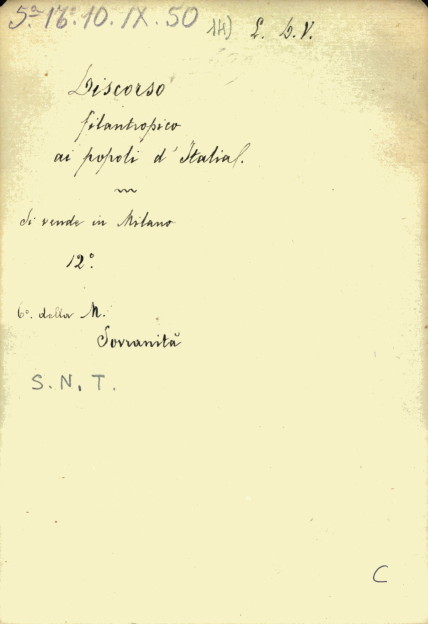 5ª. 17ª. 10. IX. 50 14) L. D. V.
Discorso
filantropico
ai popoli d'Italia.
Si vende in Milano
12°.
6°. della M.
Sovranità
S. N. T.
C